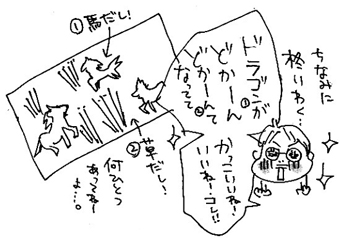 ちなみに
柊いわく…
ドラゴンが
どかーん
どかーんて
なって
かっこいいねー!
いいねーコレ!!
①馬だし!
②草だし!
何ひとつ
あってねー
よ…。